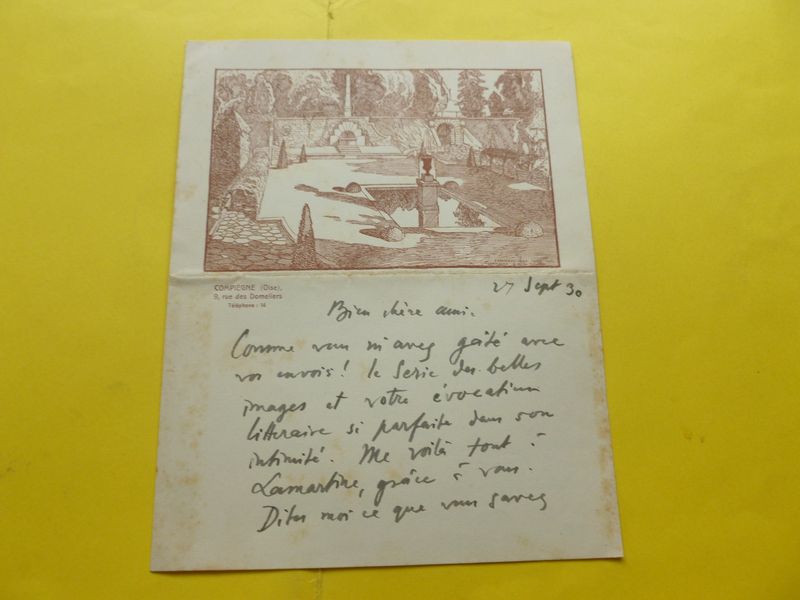 COMPIEGNE (Oise),
9, rue des Domeliers
Téléphone : 14
27 Sept 30
Bien chère amie.
Comme vous m'avez gâté avec
vos envois ! la Serie des belles
images et votre évocation
litteraire si parfaite dans son
intimité. Me voilà tout à
Lamartine, grâce à vous.
Dites moi ce que vous savez